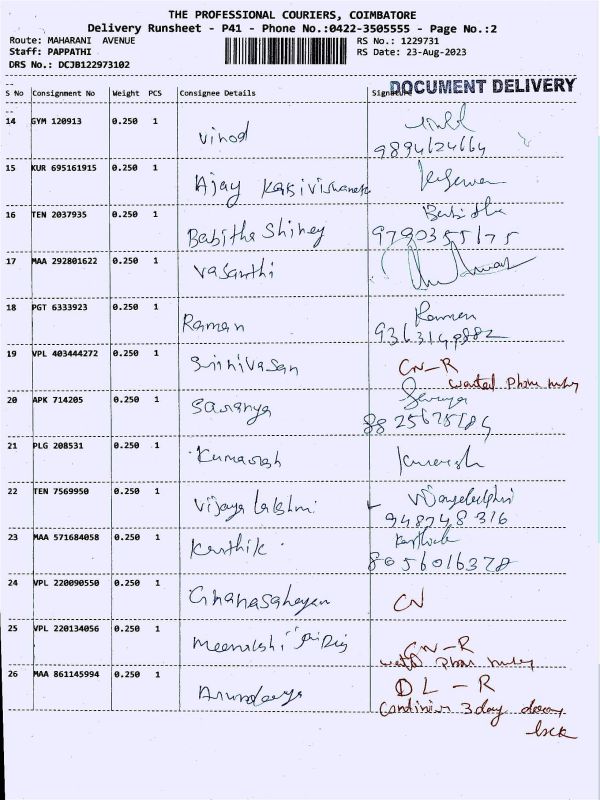 THE PROFESSIONAL COURIERS, COIMBATORE
Delivery Runsheet - P41 - Phone No.:0422-3505555 - Page No.:2
Route: MAHARANI AVENUE
RS No.: 1229731
Staff: PAPPATHI
RS Date: 23-Aug-2023
DRS No.: DCJB122973102
DOCUMENT DELIVERY
S No Consignment No Weight PCS Consignee Details Signature
14 GYM 120913 0.250 1 Vinod
9894624664
15 KUR 695161915 0.250 1 Ajay Kasivishwanath
16 TEN 2037935 0.250 1 Babitha Shiney Babitha
9790355175
17 MAA 292801622 0.250 1 Vasanthi
18 PGT 6333923 0.250 1 Raman Raman
9363149882
19 VPL 403444272 0.250 1 Srinivasan CN-R
wanted Phone number
20 APK 714205 0.250 1 Saranya Saranya
21 PLG 208531 0.250 1 Kumaresh Kumaresh
22 TEN 7569950 0.250 1 Vijaya lakshmi Vijayalakshmi
948748316
23 MAA 571684058 0.250 1 Karthik Karthick
8056016378
24 VPL 220090550 0.250 1 Gnanasahayen CN
25 VPL 220134056 0.250 1 Meenakshi CN-R
Phone number
26 MAA 861145994 0.250 1 DL-R
3day